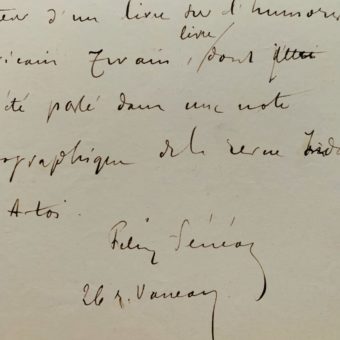 teur d'un livre sur l'humoris
livre
ricain Twain, / dont
été parlé dans une note
ographique de la revue
Artoi.
Félix Fénéon
26 r. Vaneau